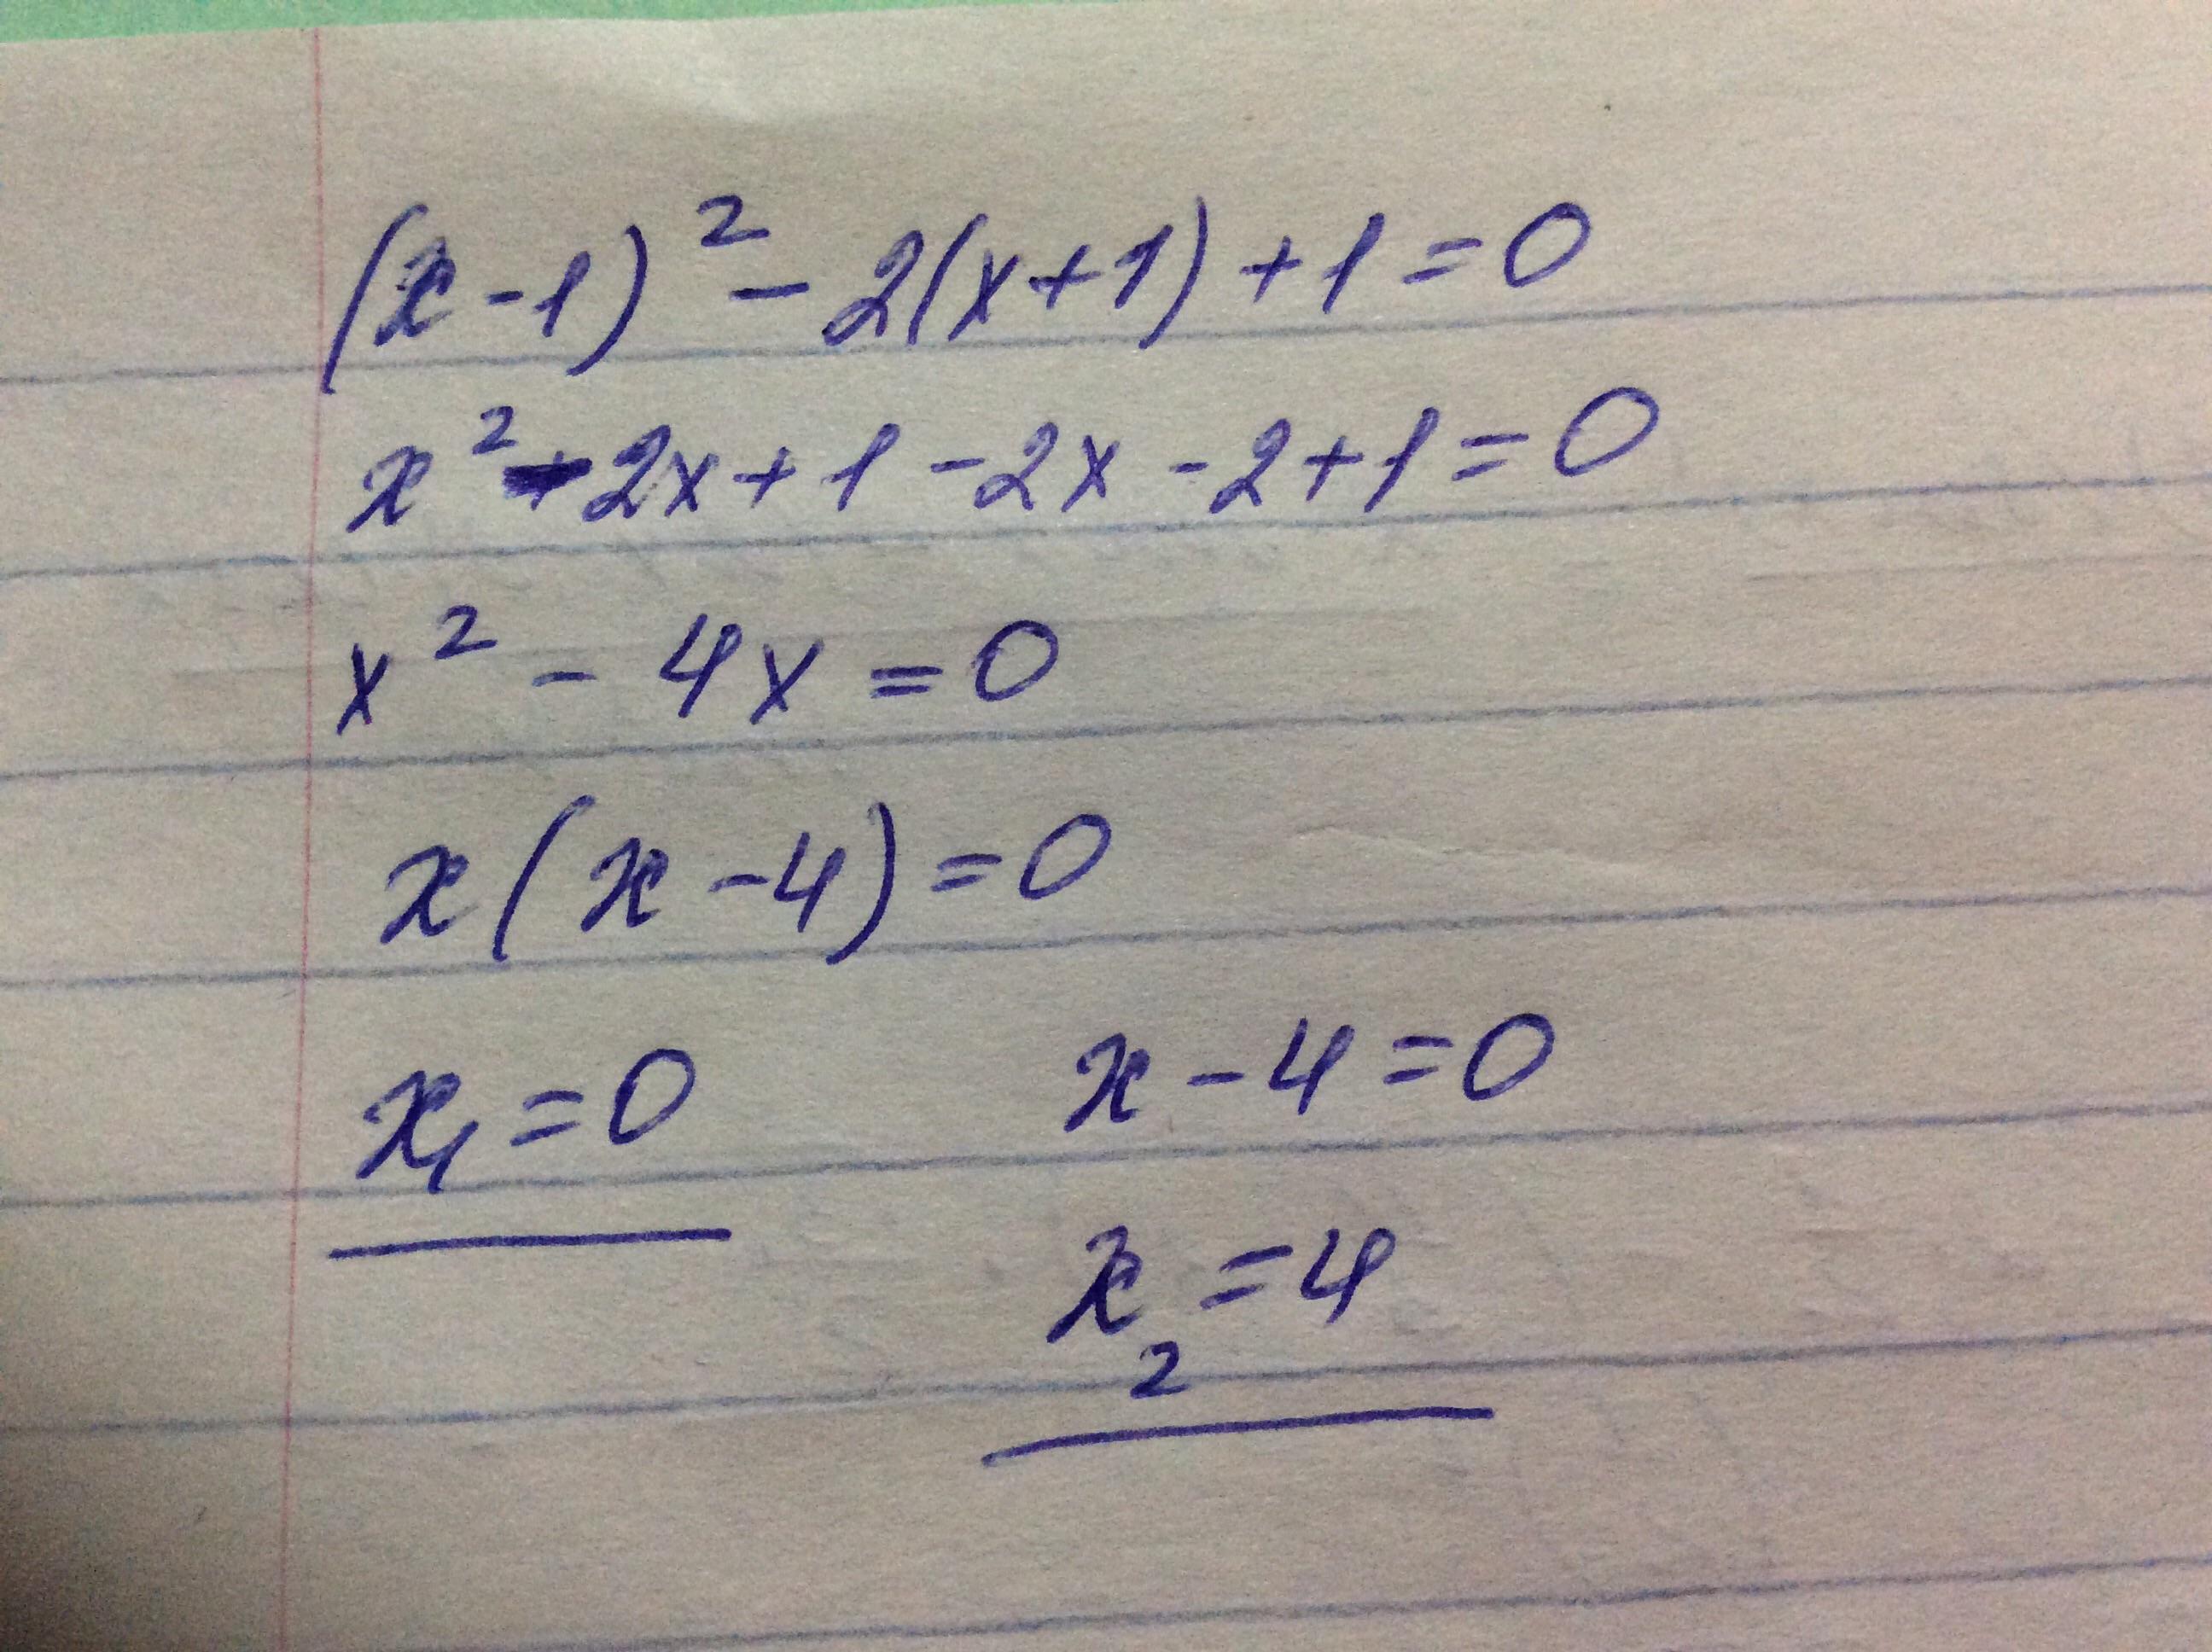 (x-1)² - 2(x+1) + 1 = 0
x² - 2x + 1 - 2x - 2 + 1 = 0
x² - 4x = 0
x(x - 4) = 0
x₁ = 0 x - 4 = 0
x₂ = 4